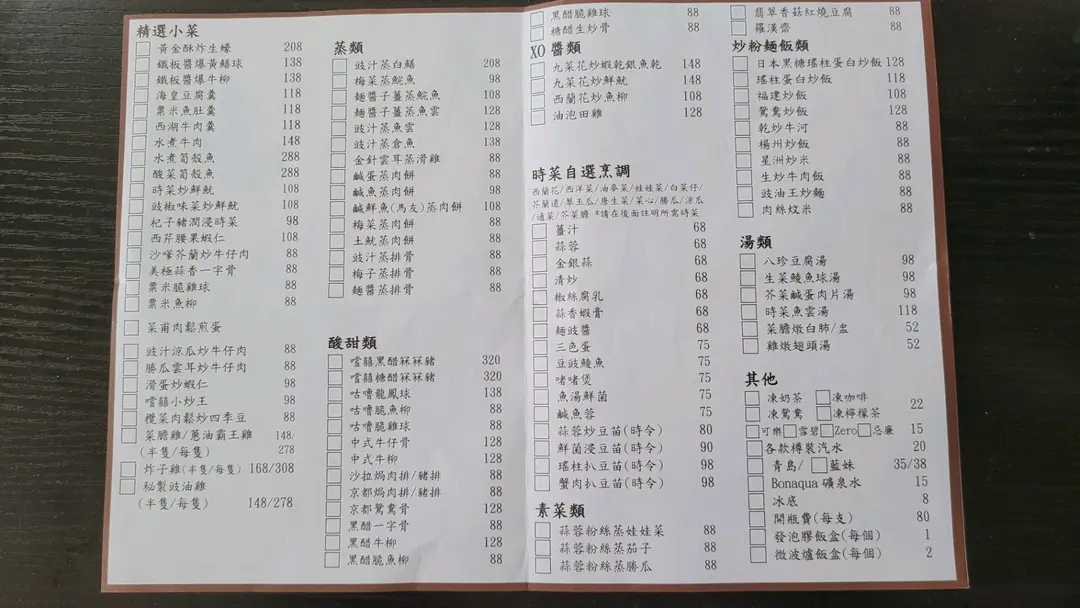 精選小菜
黃金酥炸生蠔 208
鐵板醬爆黃鱔球 138
鐵板醬爆牛柳 138
海皇豆腐羹 118
粟米魚肚羹 118
西湖牛肉羹 118
水煮牛肉 148
水煮筍殼魚 288
酸菜筍殼魚 288
時菜炒鮮魷 108
豉椒味菜炒鮮魷 108
杞子豬潤浸時菜 98
西芹腰果蝦仁 108
沙嗲芥蘭炒牛仔肉 88
美極蒜香一字骨 88
粟米脆雞球 88
粟米魚柳 88
菜甫肉鬆煎蛋
豉汁涼瓜炒牛仔肉 88
勝瓜雲耳炒牛仔肉 88
滑蛋炒蝦仁 98
嚐囍小炒王 98
欖菜肉鬆炒四季豆 88
菜膽雞/蔥油霸王雞 148/
(半隻/每隻) 278
炸子雞(半隻/每隻) 168/308
秘製豉油雞
(半隻/每隻) 148/278
蒸類
豉汁蒸白鱔 208
梅菜蒸鯇魚 98
麵醬子薑蒸鯇魚 108
麵醬子薑蒸魚雲 128
豉汁蒸魚雲 128
豉汁蒸倉魚 138
金針雲耳蒸滑雞 88
鹹蛋蒸肉餅 88
鹹魚蒸肉餅 98
鹹鮮魚(馬友)蒸肉餅 108
梅菜蒸肉餅 88
土魷蒸肉餅 88
豉汁蒸排骨 88
梅子蒸排骨 88
麵醬蒸排骨 88
酸甜類
嚐囍黑醋冧冧豬 320
嚐囍糖醋冧冧豬 320
咕嚕龍鳳球 138
咕嚕脆魚柳 88
咕嚕脆雞球 88
中式牛仔骨 128
中式牛柳 128
沙拉焗肉排/豬排 88
京都焗肉排/豬排 88
京都鴛鴦骨 128
黑醋一字骨 88
黑醋牛柳 128
黑醋脆魚柳 88
黑醋脆雞球 88
糖醋生炒骨 88
XO 醬類
九菜花炒蝦乾銀魚乾 148
九菜花炒鮮魷 148
西蘭花炒魚柳 108
油泡田雞 128
時菜自選烹調
西蘭花/西洋菜/油麥菜/娃娃菜/白菜仔/
芥蘭遠/翠玉瓜/唐生菜/菜心/勝瓜/涼瓜
/通菜/芥菜膽 *請在後面註明所需時菜
薑汁 68
蒜蓉 68
金銀蒜 68
清炒 68
椒絲腐乳 68
蒜香蝦膏 68
麵豉醬 68
三色蛋 75
豆豉鯪魚 75
啫啫煲 75
魚湯鮮菌 75
鹹魚蓉 75
蒜蓉炒豆苗(時令) 80
鮮菌浸豆苗(時令) 90
瑤柱扒豆苗(時令) 98
蟹肉扒豆苗(時令) 98
素菜類
蒜蓉粉絲蒸娃娃菜 88
蒜蓉粉絲蒸茄子 88
蒜蓉粉絲蒸勝瓜 88
翡翠香菇紅燒豆腐 88
羅漢齋 88
炒粉麵飯類
日本黑糖瑤柱蛋白炒飯 128
瑤柱蛋白炒飯 118
福建炒飯 108
鴛鴦炒飯 128
乾炒牛河 88
楊州炒飯 88
星洲炒米 88
生炒牛肉飯 88
豉油王炒麵 88
肉絲炆米 88
湯類
八珍豆腐湯 98
生菜鯪魚球湯 98
芥菜鹹蛋肉片湯 98
時菜魚雲湯 118
菜膽燉白肺/盅 52
雞燉翅頭湯 52
其他
凍奶茶 凍咖啡
凍鴛鴦 凍檸檬茶 22
可樂 雪碧 Zero 忌廉 15
各款樽裝汽水 20
青島/ 藍妹 35/38
Bonaqua 礦泉水 15
冰底 8
開瓶費(每支) 80
發泡膠飯盒(每個) 1
微波爐飯盒(每個) 2